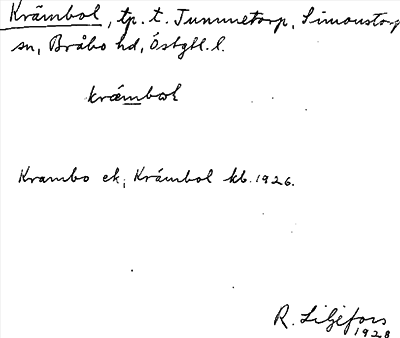 Krämbol, tp. t. Tummetorp, Simonstorp
sn, Bråbo hd, Östgtl. l.
krämbɷl
Krambo ek, Krämbol kb. 1926.
R. Liljefors
1928